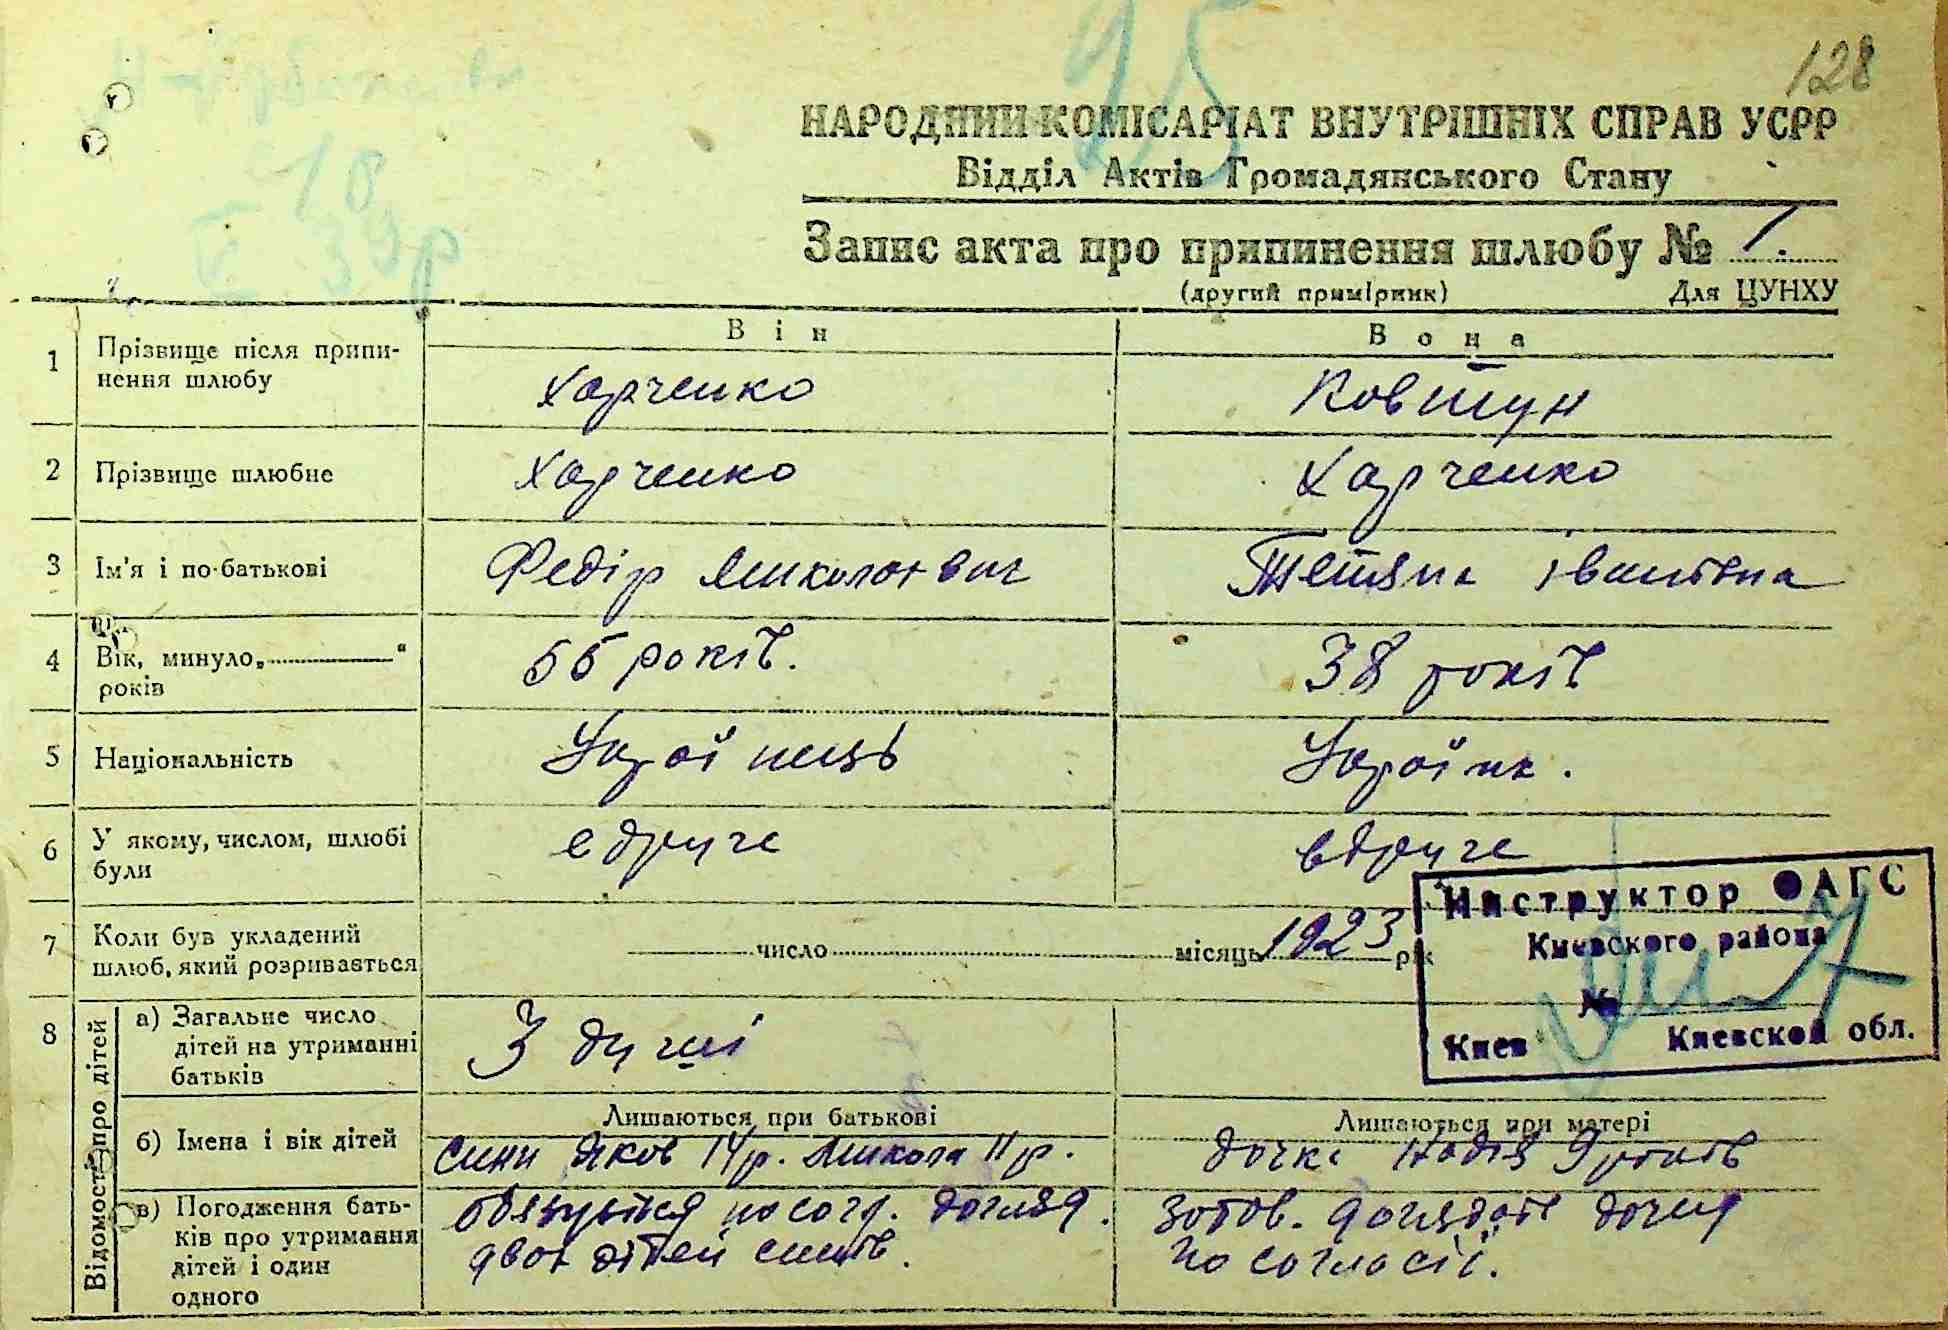 95
128
НАРОДНИЙ КОМІСАРІАТ ВНУТРІШНІХ СПРАВ УСРР
Відділ Актів Громадянського Стану
Запис акта про припинення шлюбу № 1.
(другий примірник) Для ЦУНХУ
Він Вона
1 Прізвище після припи-
нення шлюбу
Харченко Ковтун
2 Прізвище шлюбне Харченко Харченко
3 Ім'я і по-батькові Федір Миколаєвич Тетяна Івановна
4 Вік, минуло „ “
років
55 років. 38 років
5 Національність Українець Українк.
6 У якому, числом, шлюбі
були
вдруге вдруге
7 Коли був укладений
шлюб, який розривається
число місяць 1923 рік
Инструктор ОАГС
Киевского района
№
Киев Киевской обл.
8 Відомості про дітей
а) Загальне число
дітей на утриманні
батьків
3 душі
б) Імена і вік дітей
Лишаються при батькові Лишаються при матері
сини Яков 14 р. Микола 11 р. дочка Надія 9 років
в) Погодження бать-
ків про утримання
дітей і один
одного
обязується по согл. догляд. зобов. доглядать дочку
двох дітей синів. по согласії.